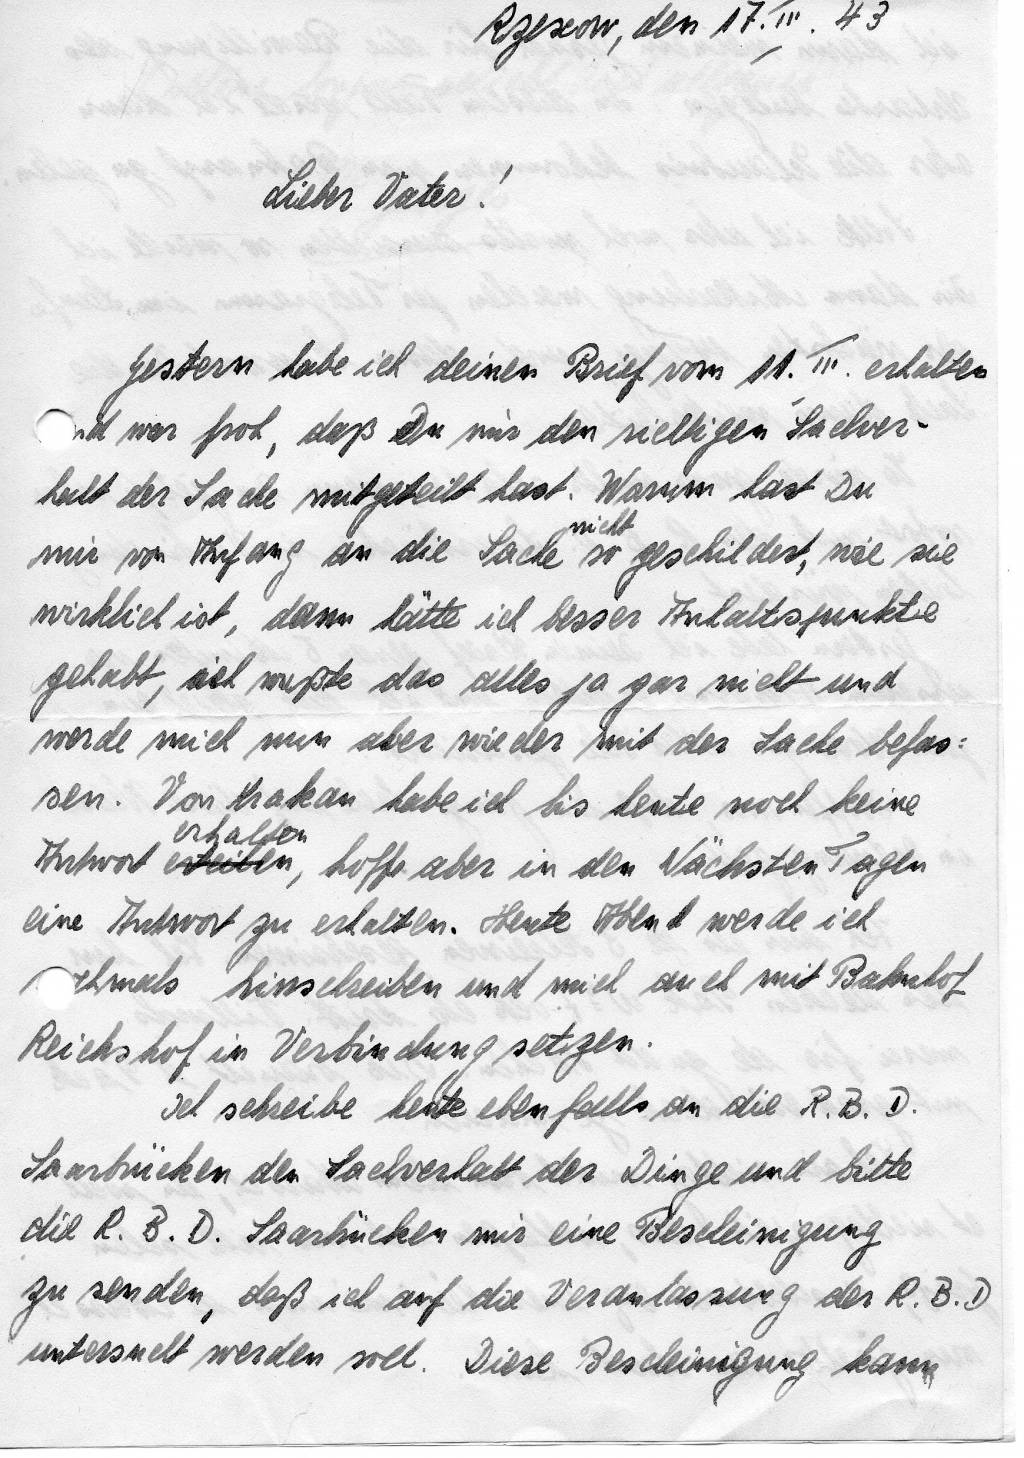 Rzeszow, den 17. III. 43
Lieber Vater!
Gestern habe ich deinen Brief vom 11. III. erhalten
und war froh, daß Du mir den richtigen Sachver-
halt der Sache mitgeteilt hast. Warum hast Du
nicht
mir von Anfang an die Sache so geschildert, wie sie
wirklich ist, dann hätte ich besser Anhaltspunkte
gehabt, ich wußte das alles ja gar nicht und
werde mich nun aber wieder mit der Sache befas=
sen. Von Krakau habe ich bis heute noch keine
erhalten
Antwort, hoffe aber in den Nächsten Tagen
eine Antwort zu erhalten. Heute Abend werde ich
nochmals hinschreiben und mich auch mit Bahnhof
Reichshof in Verbindung setzen.
Ich schreibe heute ebenfalls an die R. B. D.
Saarbrücken den Sachverhalt der Dinge und bitte
die R. B. D. Saarbrücken mir eine Bescheinigung
zu senden, daß ich auf die Veranlassung der R. B. D
untersucht werden soll. Diese Bescheinigung kann